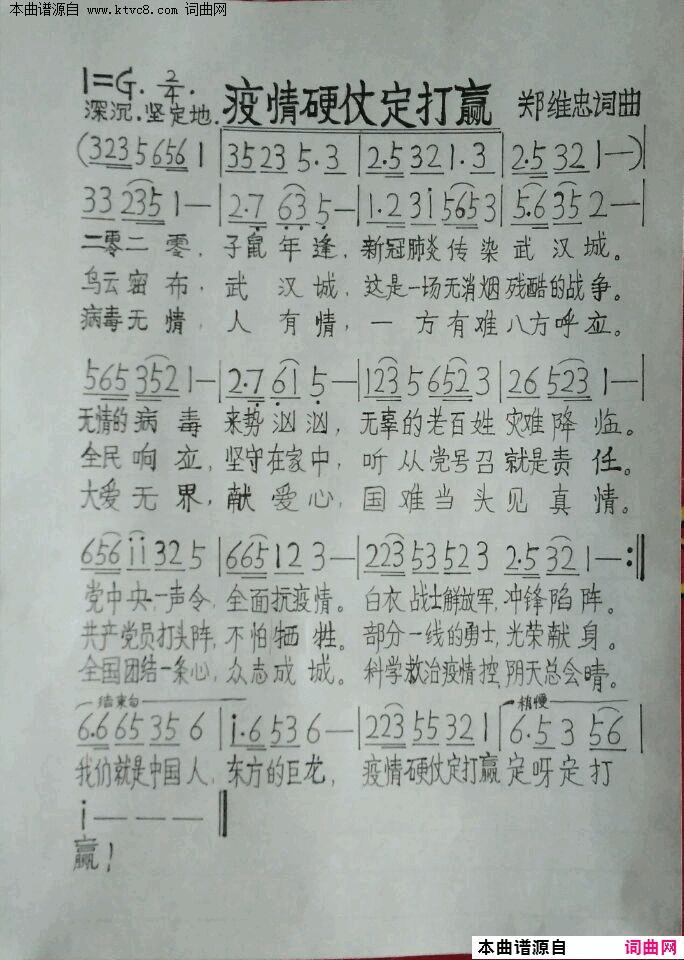 本曲谱源自 www.ktvc8.com 词曲网
1=G. 2/4.
深沉.坚定地.
疫情硬仗定打赢
郑维忠词曲
(323 5 656 1 | 35 23 5·3 | 2·5 32 1·3 | 2·5 32 1—)|
33 235 1— | 2·7 63 5— | 1·2 31 565 3 | 5·6 35 2— |
二零二零,子鼠年逢,新冠肺炎传染武汉城。
乌云密布,武汉城,这是一场无消烟残酷的战争。
病毒无情,人有情,一方有难八方呼应。
565 352 1— | 2·7 61 5— | 123 5 652 3 | 26 523 1— |
无情的病毒来势汹汹,无辜的老百姓灾难降临。
全民响应,坚守在家中,听从党号召就是责任。
大爱无界,献爱心,国难当头见真情。
656 ii 32 5 | 665 12 3— | 223 53 52 3 2·5 32 1— :||
党中央一声令,全面抗疫情。白衣战士解放军,冲锋陷阵。
共产党员打头阵,不怕牺牲。部分一线的勇士,光荣献身。
全国团结一条心,众志成城。科学救治疫情控,阴天总会晴。
结束句
稍慢
6·6 65 35 6 | i·6 53 6— | 223 55 32 1 | 6·5 3 56 |
我们就是中国人,东方的巨龙,疫情硬仗定打赢定呀定打
i — — — ||
赢!
本曲谱源自 词曲网